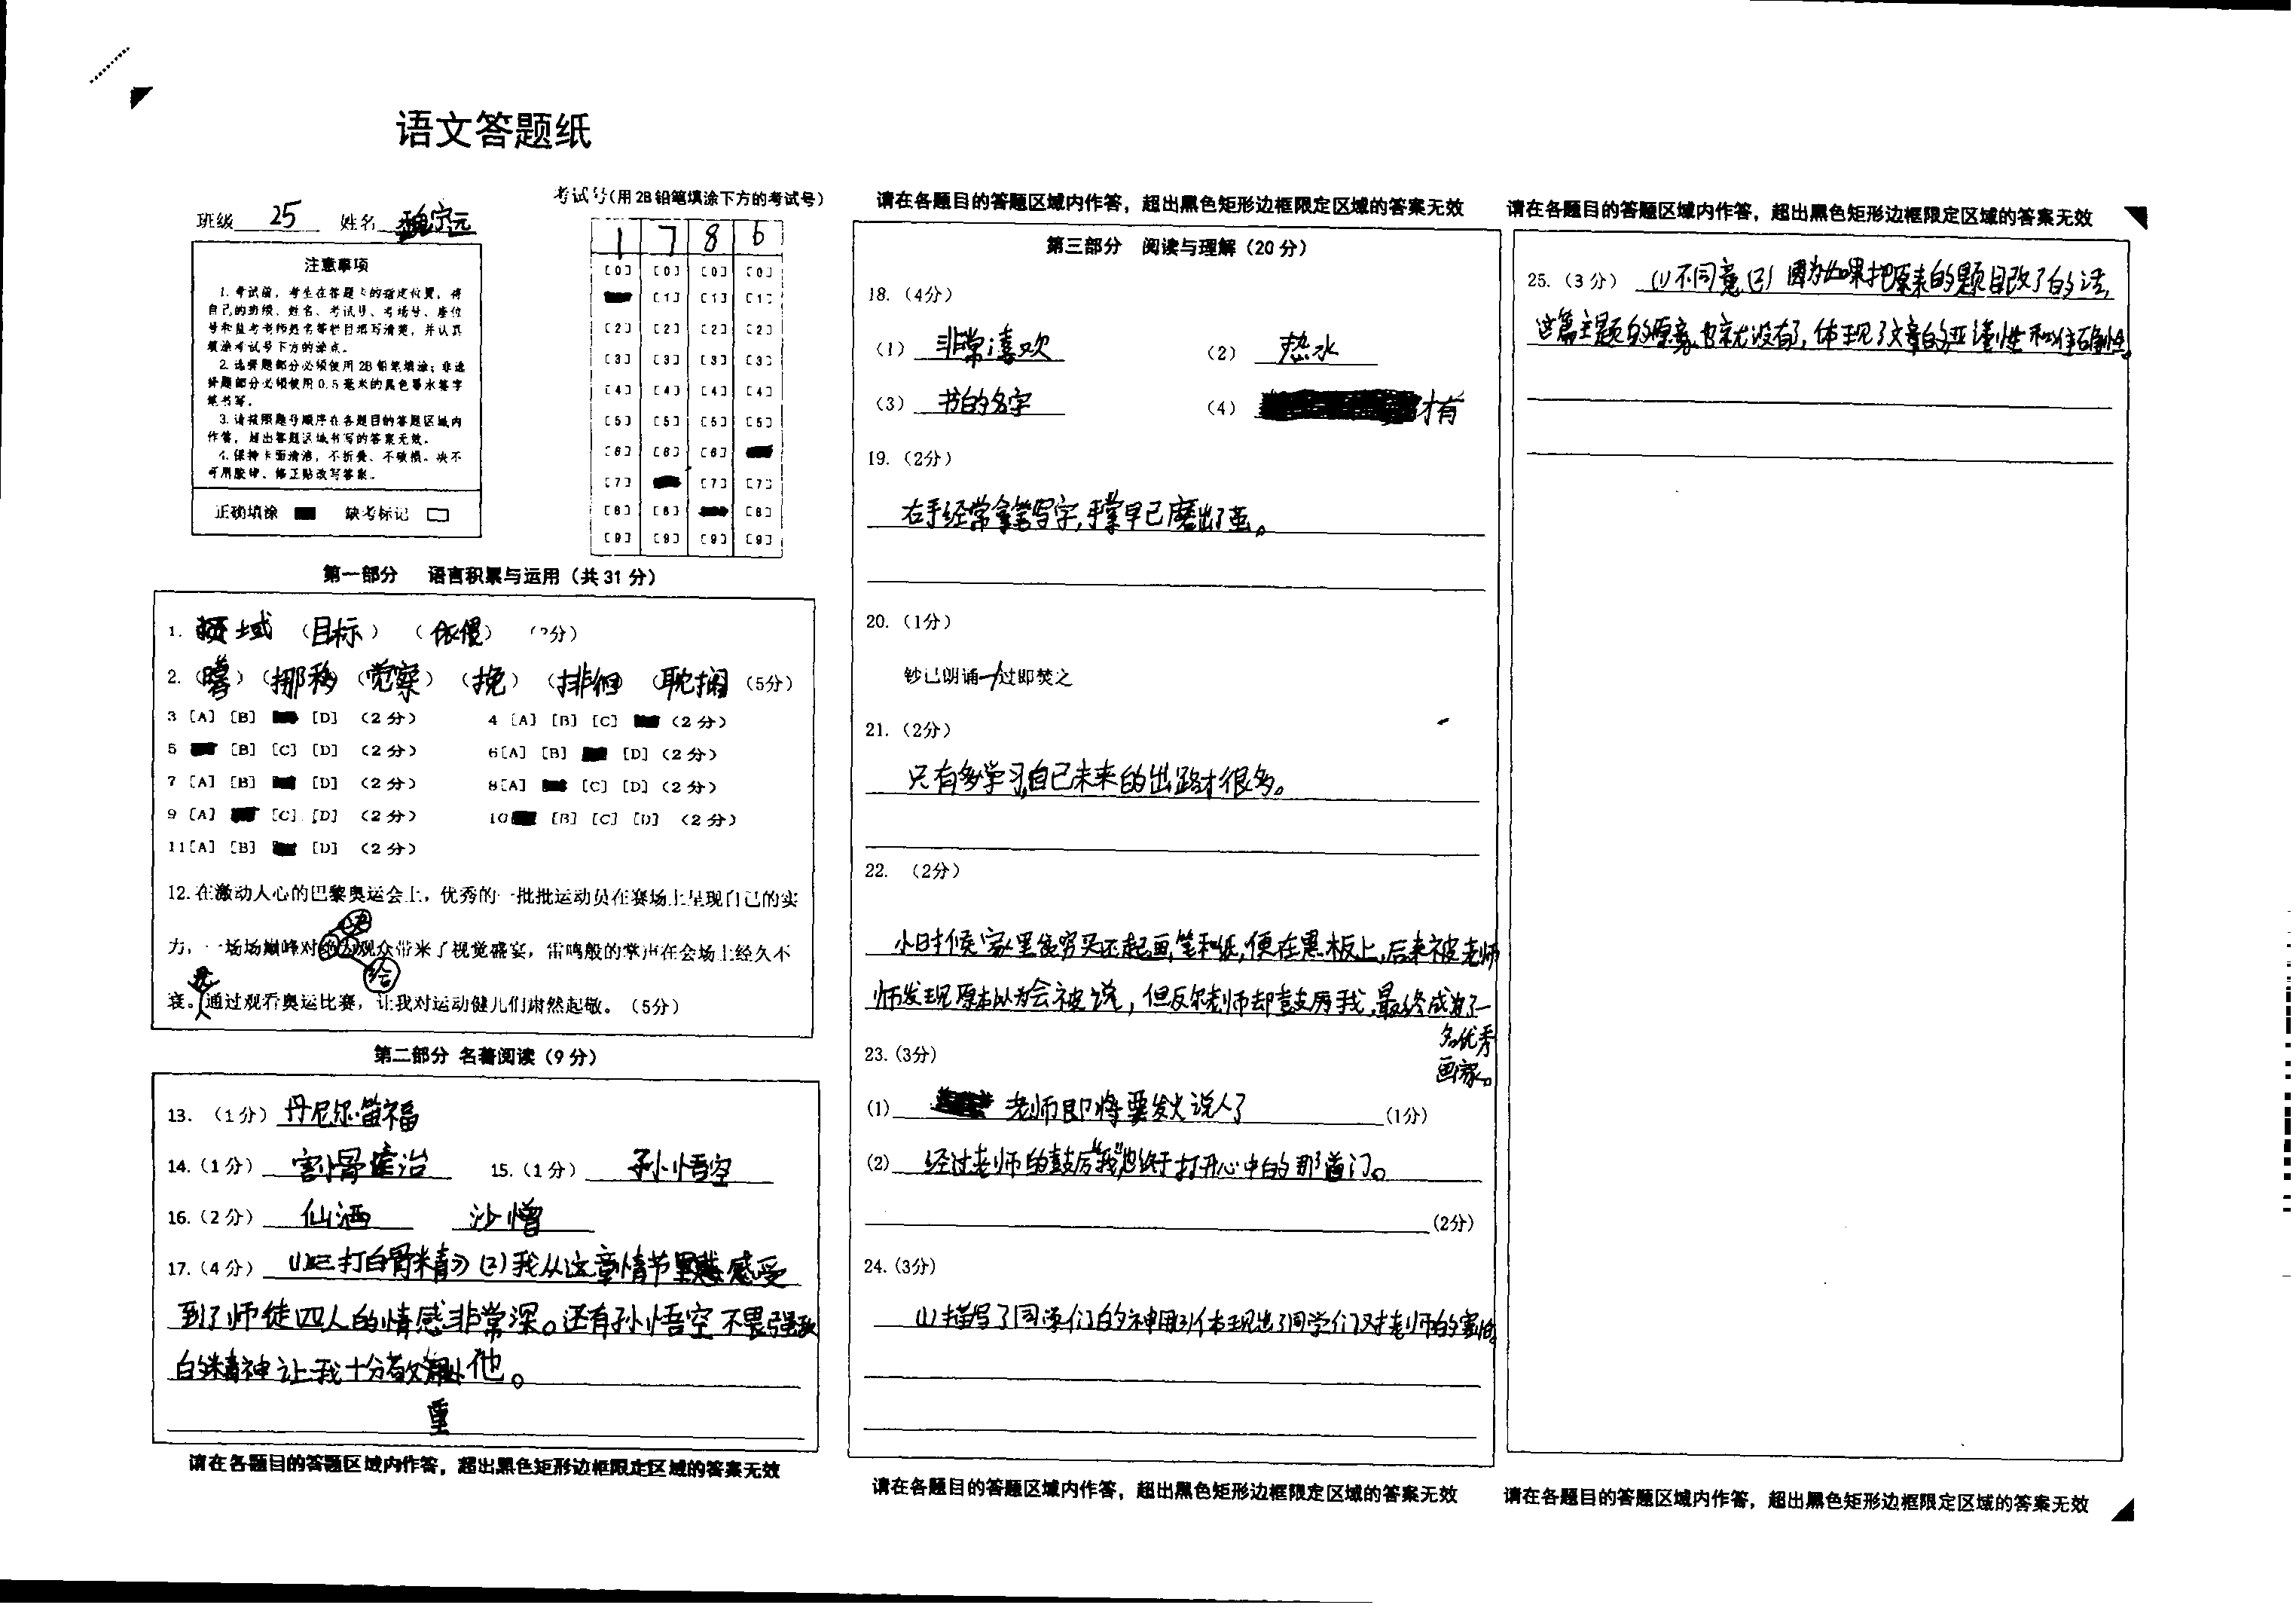 语文答题纸
班级 25 姓名 魏宗元
考试号(用2B铅笔填涂下方的考试号)
1 7 8 6
[0] [0] [0] [0]
[1] [1] [1]
[2] [2] [2] [2]
[3] [3] [3] [3]
[4] [4] [4] [4]
[5] [5] [5] [5]
[6] [6] [6]
[7] [7] [7]
[8] [8] [8]
[9] [9] [9] [9]
注意事项
1.考试前,考生在答题卡的指定位置,将
自己的班级、姓名、考试号、考场号、座位
号和监考老师姓名等栏目填写清楚,并认真
填涂考试号下方的涂点。
2.选择题部分必须使用2B铅笔填涂;非选
择题部分必须使用0.5毫米的黑色墨水签字
笔书写。
3.请按照题号顺序在各题目的答题区域内
作答,超出答题区域书写的答案无效。
4.保持卡面清洁,不折叠、不破损。决不
可用胶带、修正贴改写答案。
正确填涂 缺考标记
第一部分 语言积累与运用(共31分)
1. 领域 (目标) (依偎) (2分)
2. (挪移) (觉察) (挽) (徘徊) (耽搁) (5分)
3 [A] [B] [D] (2分) 4 [A] [B] [C] (2分)
5 [B] [C] [D] (2分) 6[A] [B] [D] (2分)
7 [A] [B] [D] (2分) 8[A] [C] [D] (2分)
9 [A] [C] [D] (2分) 10 [B] [C] [D] (2分)
11[A] [B] [D] (2分)
12.在激动人心的巴黎奥运会上,优秀的一批批运动员在赛场上呈现自己的实
力,一场场巅峰对决为观众带来了视觉盛宴,雷鸣般的掌声在会场上经久不
给
衰。通过观看奥运比赛,让我对运动健儿们肃然起敬。(5分)
第二部分 名著阅读(9分)
13. (1分) 丹尼尔·笛福
14.(1分) 割骨 治 15.(1分) 孙悟空
16.(2分) 仙酒 沙憎
17.(4分) (1)《三打白骨精》(2)我从这章情节里 感受
到了师徒四人的情感非常深。还有孙悟空不畏强敌
的精神让我十分敬 他。
重
请在各题目的答题区域内作答,超出黑色矩形边框限定区域的答案无效
请在各题目的答题区域内作答,超出黑色矩形边框限定区域的答案无效
第三部分 阅读与理解(20分)
18.(4分)
(1) 非常喜欢 (2) 热水
(3) 书的名字 (4) 才有
19.(2分)
右手经常拿笔写字,手掌早已磨出了茧。
20.(1分)
钞已朗诵一/过即焚之
21.(2分)
只有多学习,自己未来的出路才很多。
22. (2分)
小时候家里很穷买不起画笔和纸,便在黑板上,后来被老师
师发现原本以为会被说,但反尔老师却鼓励我,最终成为了一
名优秀
画家。
23.(3分)
(1) 老师即将要发火说人了 (1分)
(2) 经过老师的鼓励“我”也终于打开心中的那道门。
(2分)
24.(3分)
(1)描写了同学们的神 (2)体现出了同学们对老师的害怕。
请在各题目的答题区域内作答,超出黑色矩形边框限定区域的答案无效
请在各题目的答题区域内作答,超出黑色矩形边框限定区域的答案无效
25.(3分) (1)不同意(2)因为如果把原来的题目改了的话,
这篇主题的原意也就没有了,体现了文章的严谨性和准确性。
请在各题目的答题区域内作答,超出黑色矩形边框限定区域的答案无效